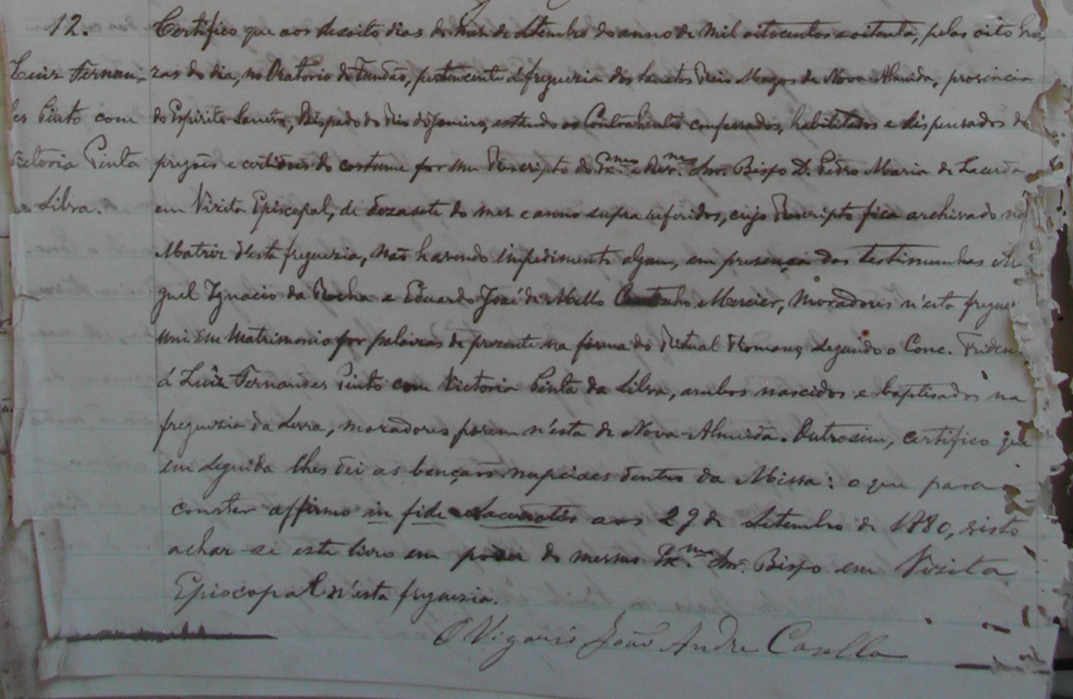 12.
Certifico que aos dezoito dias do mez de Setembro do anno de mil oitocentos e oitenta, pelas oito ho
Luiz Fernan-
ras do dia, no Oratorio do Fundão, pertencente á freguezia dos Sanctos Reis Magos de Nova Almeida, provincia
es Pinto com
do Espirito Sancto, Bispado do Rio de Janeiro, estando os Contrahentes confessados, habilitados e dispensados de
ictoria Pinta
pregões e certidões do costume por um Rescripto do Exmo e Revmo Snr. Bispo D. Pedro Maria de Lacerda
a Silva.
em Vizita Episcopal, de dezasete do mez e anno supra referidos, cujo Rescripto fica archivado na
Matriz d'esta freguezia, não havendo impedimento algum, em presença das testimunhas Mi
guel Ignacio da Rocha e Eduardo José de Mello Coutinho Mercier, moradores n'esta fregue
uni em Matrimonio por palavras de prezente na forma do Ritual Romano, segundo o Conc. Triden
á Luiz Fernandes Pinto com Victoria Pinta da Silva, ambos nascidos e baptisados na
freguezia da Serra, moradores porem n'esta de Nova-Almeida. Outrosim, certifico que
em seguida lhes dei as bençaõs nupciaes dentro da Missa: o que para
constar affirmo in fide Sacerdotis aos 29 de Setembro de 1880, visto
achar-se este livro em poder do mesmo Exmo Snr. Bispo em Vizita
Episcopal n'esta freguezia.
O Vigario João Andre Casella